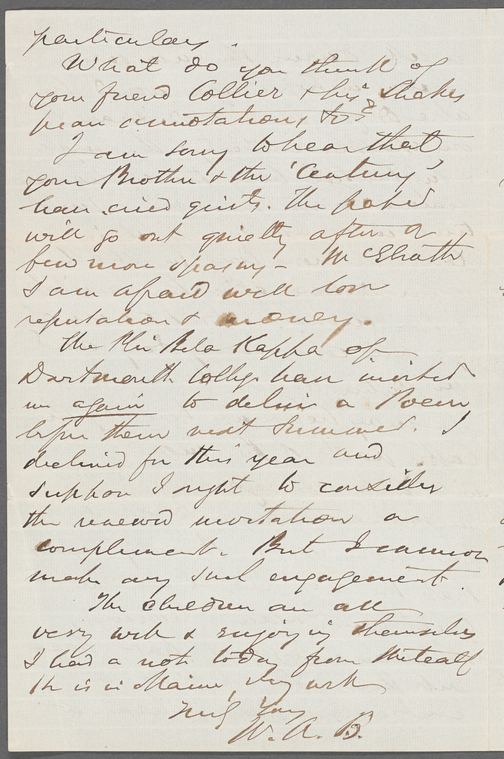 particulars.
What do you think of
your friend Collier & his Shakes
pean annotations &c?
I am sorry to hear that
your Brother & the 'Century'
have cried quits. The paper
will go out quietly after a
few more spasms - McElrath
I am afraid will lose
reputation & money.
The Phi Beta Kappa of
Dartmouth College have invited
me again to deliver a Poem
before them next Summer. I
declined for this year and
suppose I ought to consider
the renewed invitation a
compliment. But I cannot
make any such engagement.
The children are all
very well & enjoying themselves
I had a note today from Metcalf
He is in Maine, very well
Truly Yours
W. A. B.